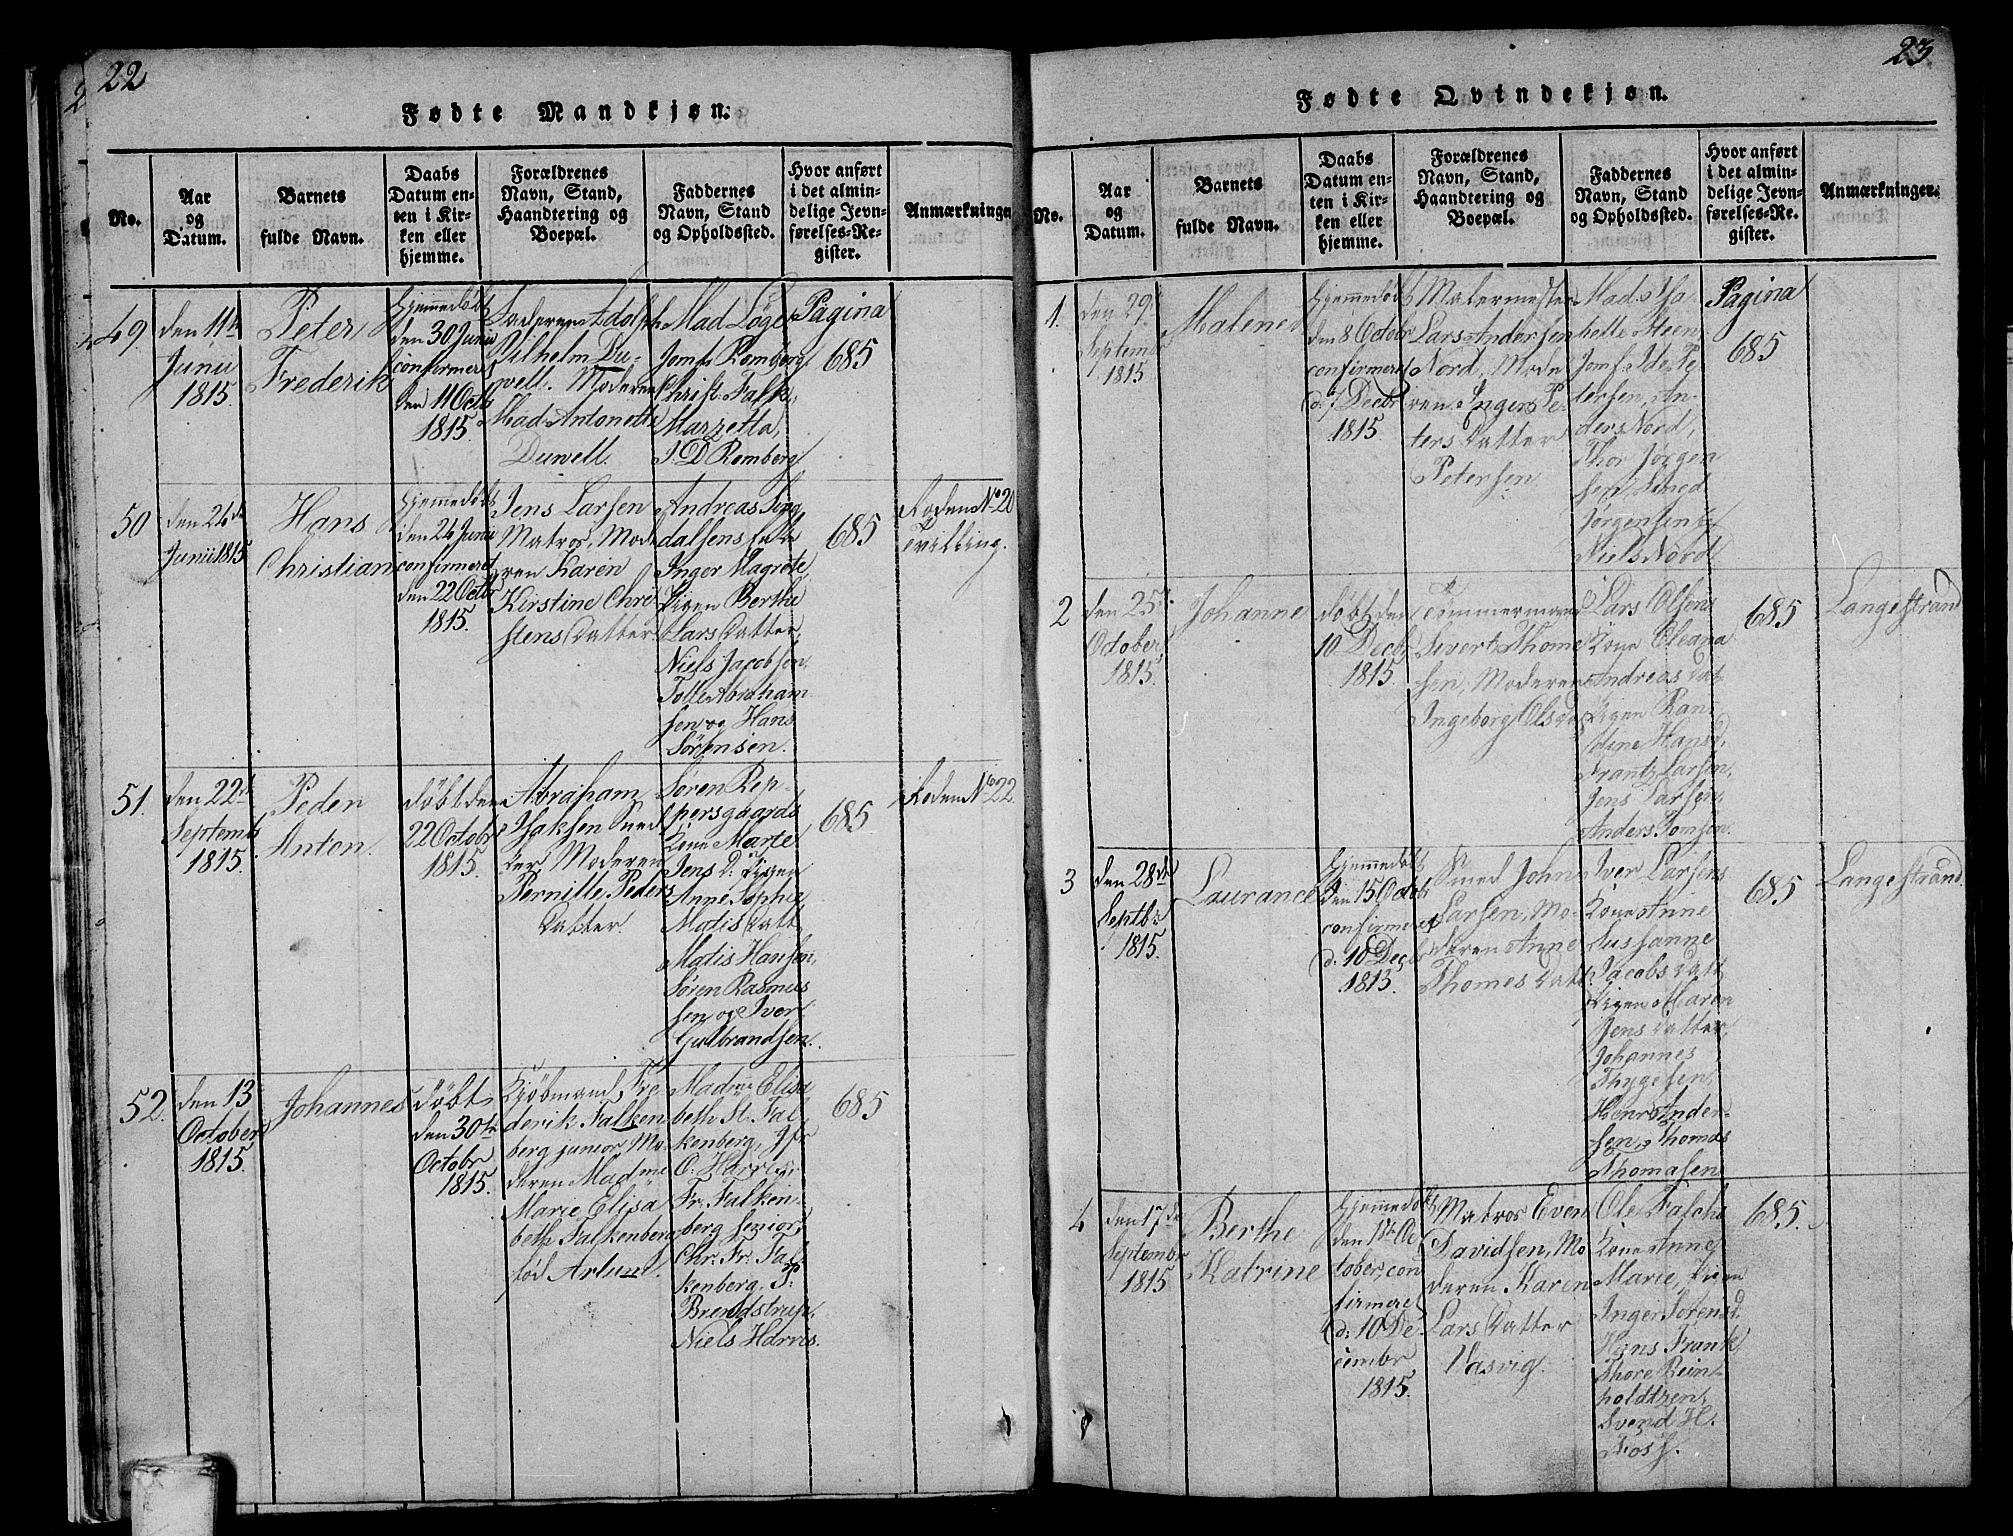 22
Fødte Mandkjøn.
No.
Aar
og
Datum.
Barnets
fulde Navn.
Daabs
Datum en-
ten i Kir-
ken eller
hjemme.
Forældrenes
Navn, Stand,
Haandtering og
Boepæl.
Faddernes
Navn, Stand
og Opholdssted.
Hvor anført
i det almin-
delige Jevn-
førelses-Re-
gister.
Anmærkninger
49.
den 11te
Junii
1815.
Peter
Frederik
Hjemmedøbt
den 30 Junii
confirmeret
den 11 Octb
1815.
Faderen Adolph
Vilhelm Du-
well. Moderen
Mad Antonette
Duwell.
Mad Løge
Jomf. Romberg
Christ. Falk,
Marzetta,
J. D Romberg
Pagina
685
50
den 24de
Junii 1815
Hans
Christian
Hjemmedøbt
den 24 Junii
confirmeret
den 22 Octbr
1815.
Jens Larsen
Matros, Mod
ren Karen
Kirstine Chri
stens Datter
Andreas
dalsens
Inger Magrete,
Pigen Berthe
Lars Datter,
Niels Jacobsen
Tolle Abraham
sen og Hans
Sørensen.
685
No 20
Tvilling.
51.
den 22de
Septembr
1815.
Peder
Anton.
døbt den
22 Octobr
1815.
Abraham
Isaksen Sned
ker Moderen
Pernille Peders
Datter.
Søren Rep-
persgaards
Kone Marte
Jens D: Pigen
Anne Sophie
Matis Datt
Matis Hansen,
Søren Rasmus
sen og Iver
Gulbrandsen.
685
No 22.
52.
den 13
October
1815.
Johannes
døbt
den 30te
Octobr
1815.
Kjøbmand Fre
derik Falken
berg junior, Mo
deren Madme
Marie Elisa
beth Falkenberg
fød Arlum.
Madme Elisa
beth St. Fal
kenberg, Jfr
O. Harris,
Fr. Falken-
berg senior,
Chr. Fr. Fal
kenberg, P:
Brendstrup,
Niels Harris.
685
23
Fødte Qvindekjøn.
No.
Aar
og
Datum.
Barnets
fulde Navn.
Daabs
Datum en-
ten i Kir-
ken eller
hjemme.
Forældrenes
Navn, Stand,
Haandtering og
Boepæl.
Faddernes
Navn, Stand
og Opholdssted.
Hvor anført
i det almin-
delige Jevn-
førelses-Re-
gister.
Anmærkninger.
1.
den 29
Septembr
1815
Malene
Hjemmedøbt
den 8 Octobr
confirmeret
d: 1 Decbr
1815
Malermester
Lars Andersen
Nord, Mode
ren Inger Pe-
ters Datter
Petersen
Mad. Isa
belle Steen,
Jomf. Ide Pe
tersen, An-
ders Nord,
Thor Jørgen
sen, Smed
Jørgensen og
Niels Nord
Pagina
685
2
den 25de
October
1815.
Johanne
døbt den
10 Decbr
1815
Tømmermand
Sivert Thome
sen, Moderen
Ingeborg Ols
Lars Olsens
Kone Oleana
Andreas Dat
Pigen Ran
dine Hansd,
Frantz Larsen,
Jens Larsen,
Anders Tomsen.
685
Langestrand
3
den 28de
Septbr
1815.
Laurance
Hjemmedøbt
den 15 Octobr
confirmeret
d: 10 Decbr
1815.
Smed John
Larsen, Mo-
deren Anne
Thomes Datt
Iver Larsens
Kone Anne
Sussanne
Jacobs Datt
Pigen Maren
Jens Datter,
Johannes
Thygesen,
Henr: Ander-
sen, Thomas
Thomasen
685
Langestrand.
4
den 17de
Septembr
1815
Berthe
Katrine
Hjemmedøbt
den 1ste Oc
tober, con
firmeret
d: 10 De
cembr
1815.
Matros Even
Davidsen, Mo
deren Karen
Lars Datter
Vasvig.
Ole Falchs
Kone Anne
Marie, Pigen
Inger Sørensd.
Hans Frank
Thore Rein
holdtzen,
Svend H.
Foss.
685.